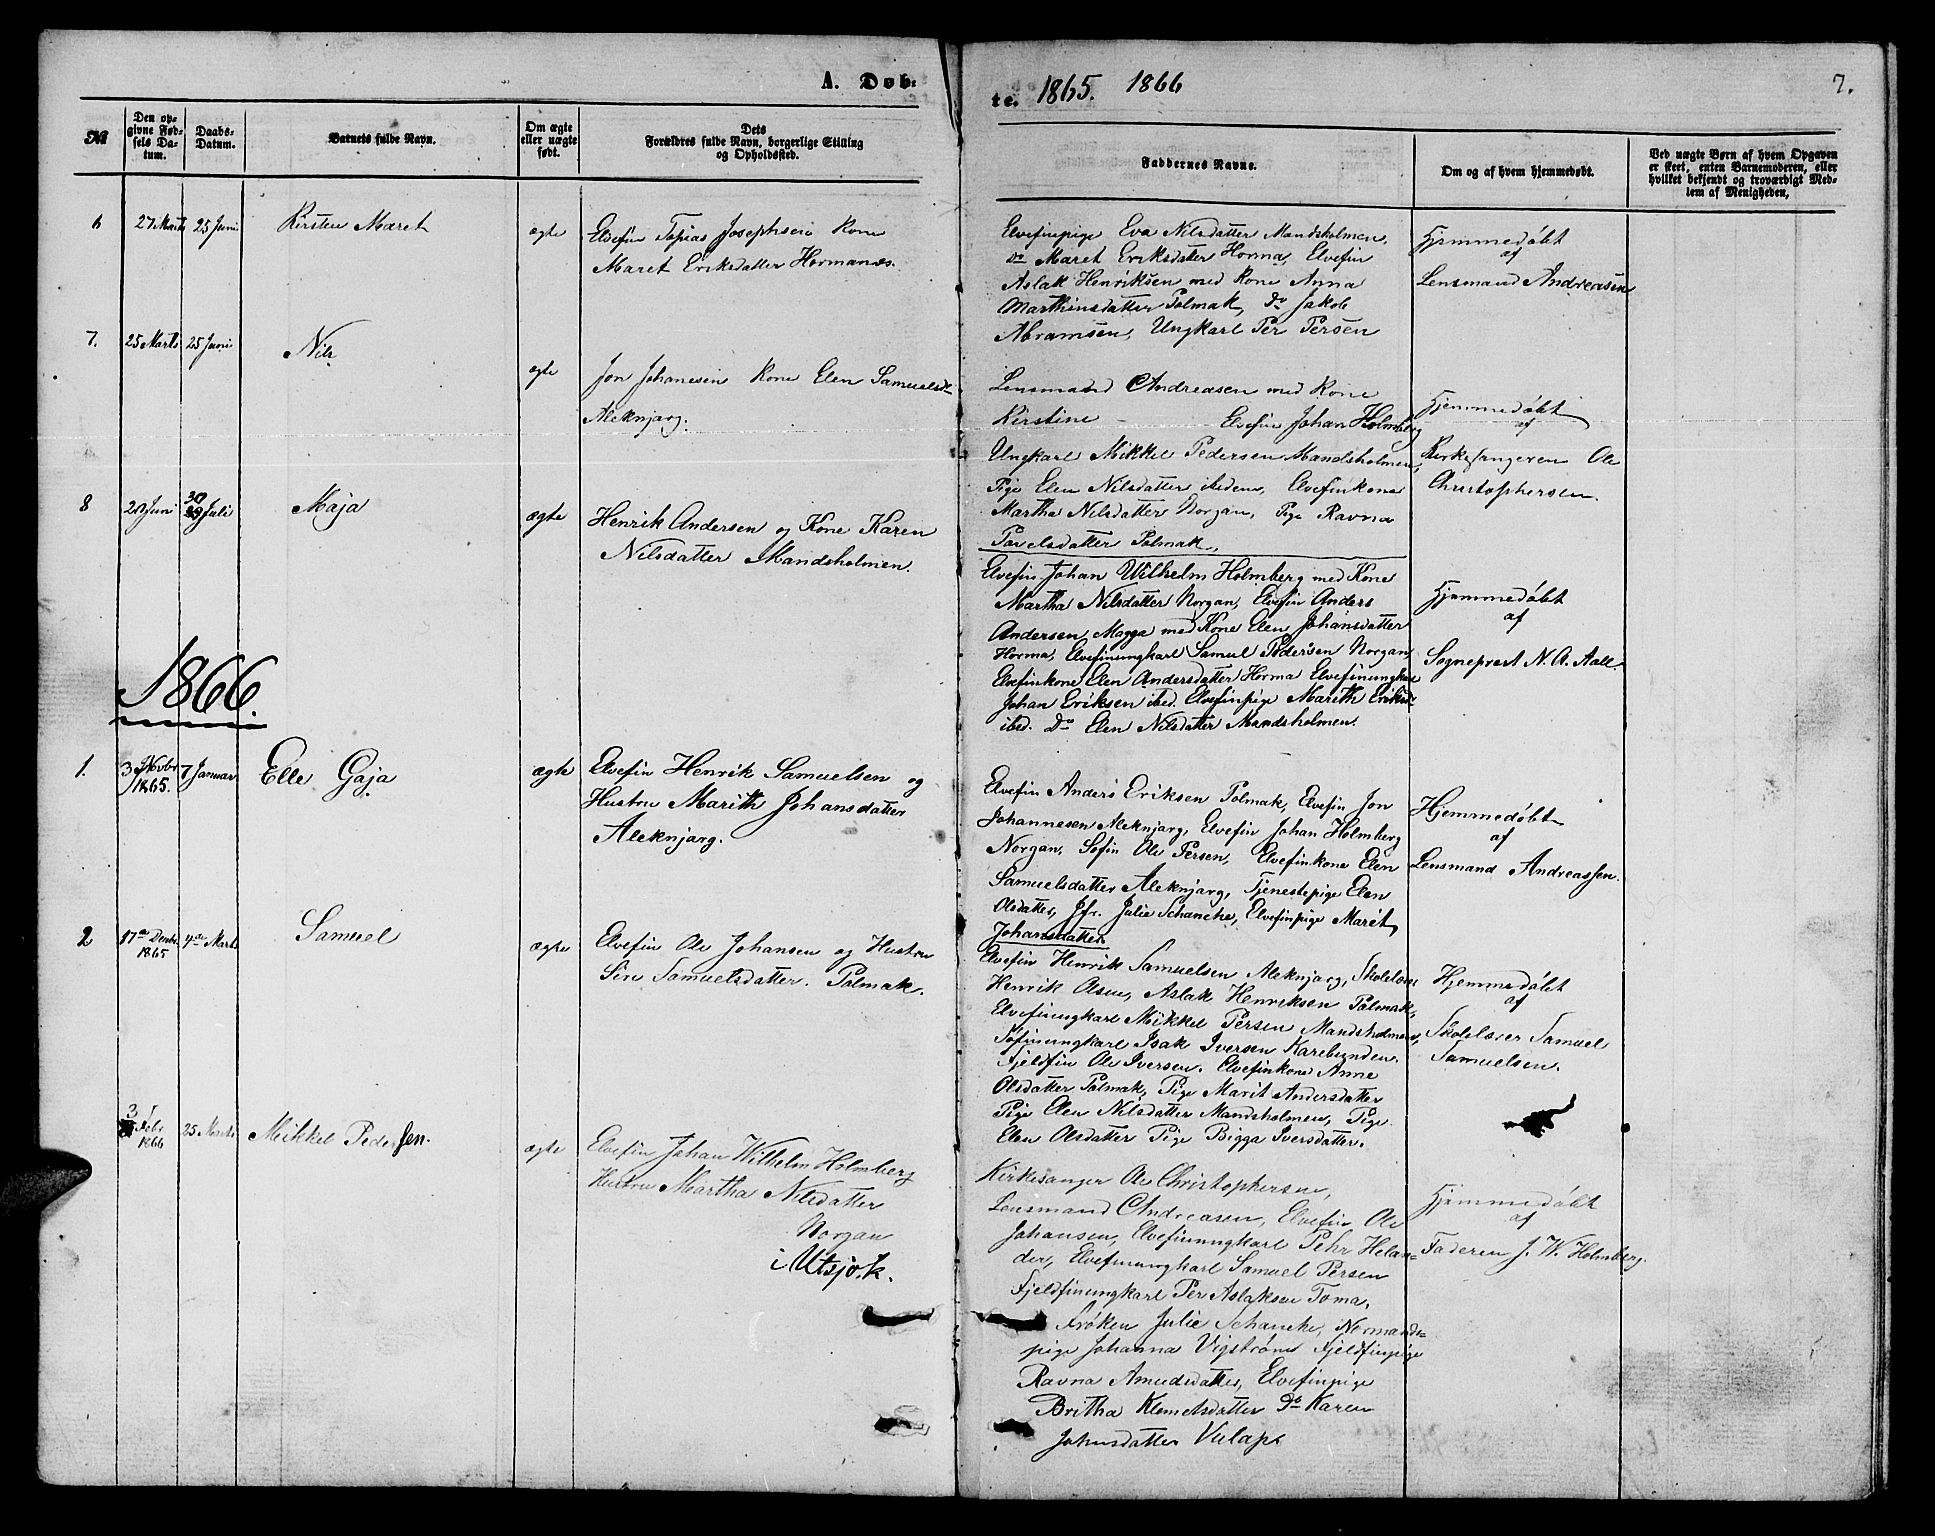 A. Døb-
te. 1865. 1866
7.
№
Den op-
givne Fød-
sels Da-
tum.
Daabs-
Datum.
Barnets fulde Navn.
Om ægte
eller uægte
født.
Dets
Forældres fulde Navn, borgerlige Stilling
og Opholdssted.
Faddernes Navne.
Om og af hvem hjemmedøbt.
Ved uægte Børn af hvem Opgaven
er skeet, enten Barnemoderen, eller
hvilket bekjendt og troværdigt Med-
lem af Menigheden,
6
27 Marts
25 Juni
Kirsten Maret
ægte
Elvefin Tobias Josephsen Kone
Maret Eriksdatter Hormanæs.
Elvefinpige Eva Nilsdatter Mandsholmen,
Do Maret Eriksdatter Horma, Elvefin
Aslak Henriksen med Kone Anna
Marthinsdatter Polmak, Do Jakob
Abramsen, Ungkarl Per Persen
Hjemmedøbt
af
Lensmand Andreasen
7.
25 Marts
25 Juni
Nils
ægte
Jon Johanesen Kone Elen Samuelsdtr
Aleknjarg.
Lensmand Andreasen med Kone
Kirstine – Elvefin Johan Holmberg
Ungkarl Mikkel Pedersen Mandsholmen,
Pige Elen Nilsdatter ibidem, Elvefinkone
Martha Nilsdatter Norgan, Pige Ravna
Povelsdatter Polmak.
Hjemmedøbt
af
Kirkesangeren Ole
Christophersen.
8
20 Juni
30 Juli
Maja
ægte
Henrik Andersen og Kone Karen
Nilsdatter Mandsholmen.
Elvefin Johan Wilhelm Holmberg med Kone
Martha Nilsdatter Norgan, Elvefin Anders
Andersen Magga med Kone Elen Johansdatter
Horma, Elvefinungkarl Samuel Pedersen Norgan
Elvefinkone Elen Andersdatter Horma Elvefinungkarl
Johan Eriksen ibed. Elvefinpige Marith Eriksd-
ibed. Do Elen Nilsdatter Mandsholmen.
Hjemmedøbt
af
Sogneprest N. A. Aall
1866.
1.
3 Novbr
1865.
7 Januar
Elle Gaja
ægte
Elvefin Henrik Samuelsen og
Hustru Marith Johansdatter
Aleknjarg.
Elvefin Anders Eriksen Polmak, Elvefin Jon
Johannesen Aleknjarg, Elvefin Johan Holmberg
Norgan, Søfin Ole Persen, Elvefinkone Elen
Samuelsdatter Aleknjarg, Tjenestepige Elen
Olsdatter, Jfr. Julie Schanche, Elvefinpige Marit
Johansdatter
Hjemmedøbt
af
Lensmand Andreassen.
2
17de Decbr
1865
4de Marts
Samuel
ægte
Elvefin Ole Johansen og Hustru
Siri Samuelsdatter. Polmak.
Elvefin Henrik Samuelsen Aleknjarg, Skolelærer
Henrik Olsen, Aslak Henriksen Polmak,
Elvefinungkarl Mikkel Persen Mandsholmen,
Søfinungkarl Isak Iversen Karebunden.
Fjeldfin Ole Iversen. Elvefinkone Anne
Olsdatter Polmak, Pige Marit Andersdatter
Pige Elen Nilsdatter Mandsholmen, Pige
Elen Olsdatter Pige Bigga Iversdatter.
Hjemmedøbt
af
Skolelærer Samuel
Samuelsen.
3 Febr
1866
25 Marts
Mikkel Pedersen.
ægte
Elvefin Johan Wilhelm Holmberg
Hustru Martha Nilsdatter
Norgan
i Utsjok.
Kirkesanger Ole Christophersen,
Lensmand Andreasen, Elvefin Ole
Johansen, Elvefinungkarl Pehr Helan-
der, Elvefinungkarl Samuel Persen
Fjeldfinungkarl Per Aslaksen Toma,
Frøken Julie Schanche, Normands-
pige Johanna Vigstrøm Fjeldfinpige
Ravna Amundsdatter, Elvefinpige
Britha Klemetsdatter Do Karen
Johnsdatter Vulaps
Hjemmedøbt
af
Faderen J. W. Holmberg.